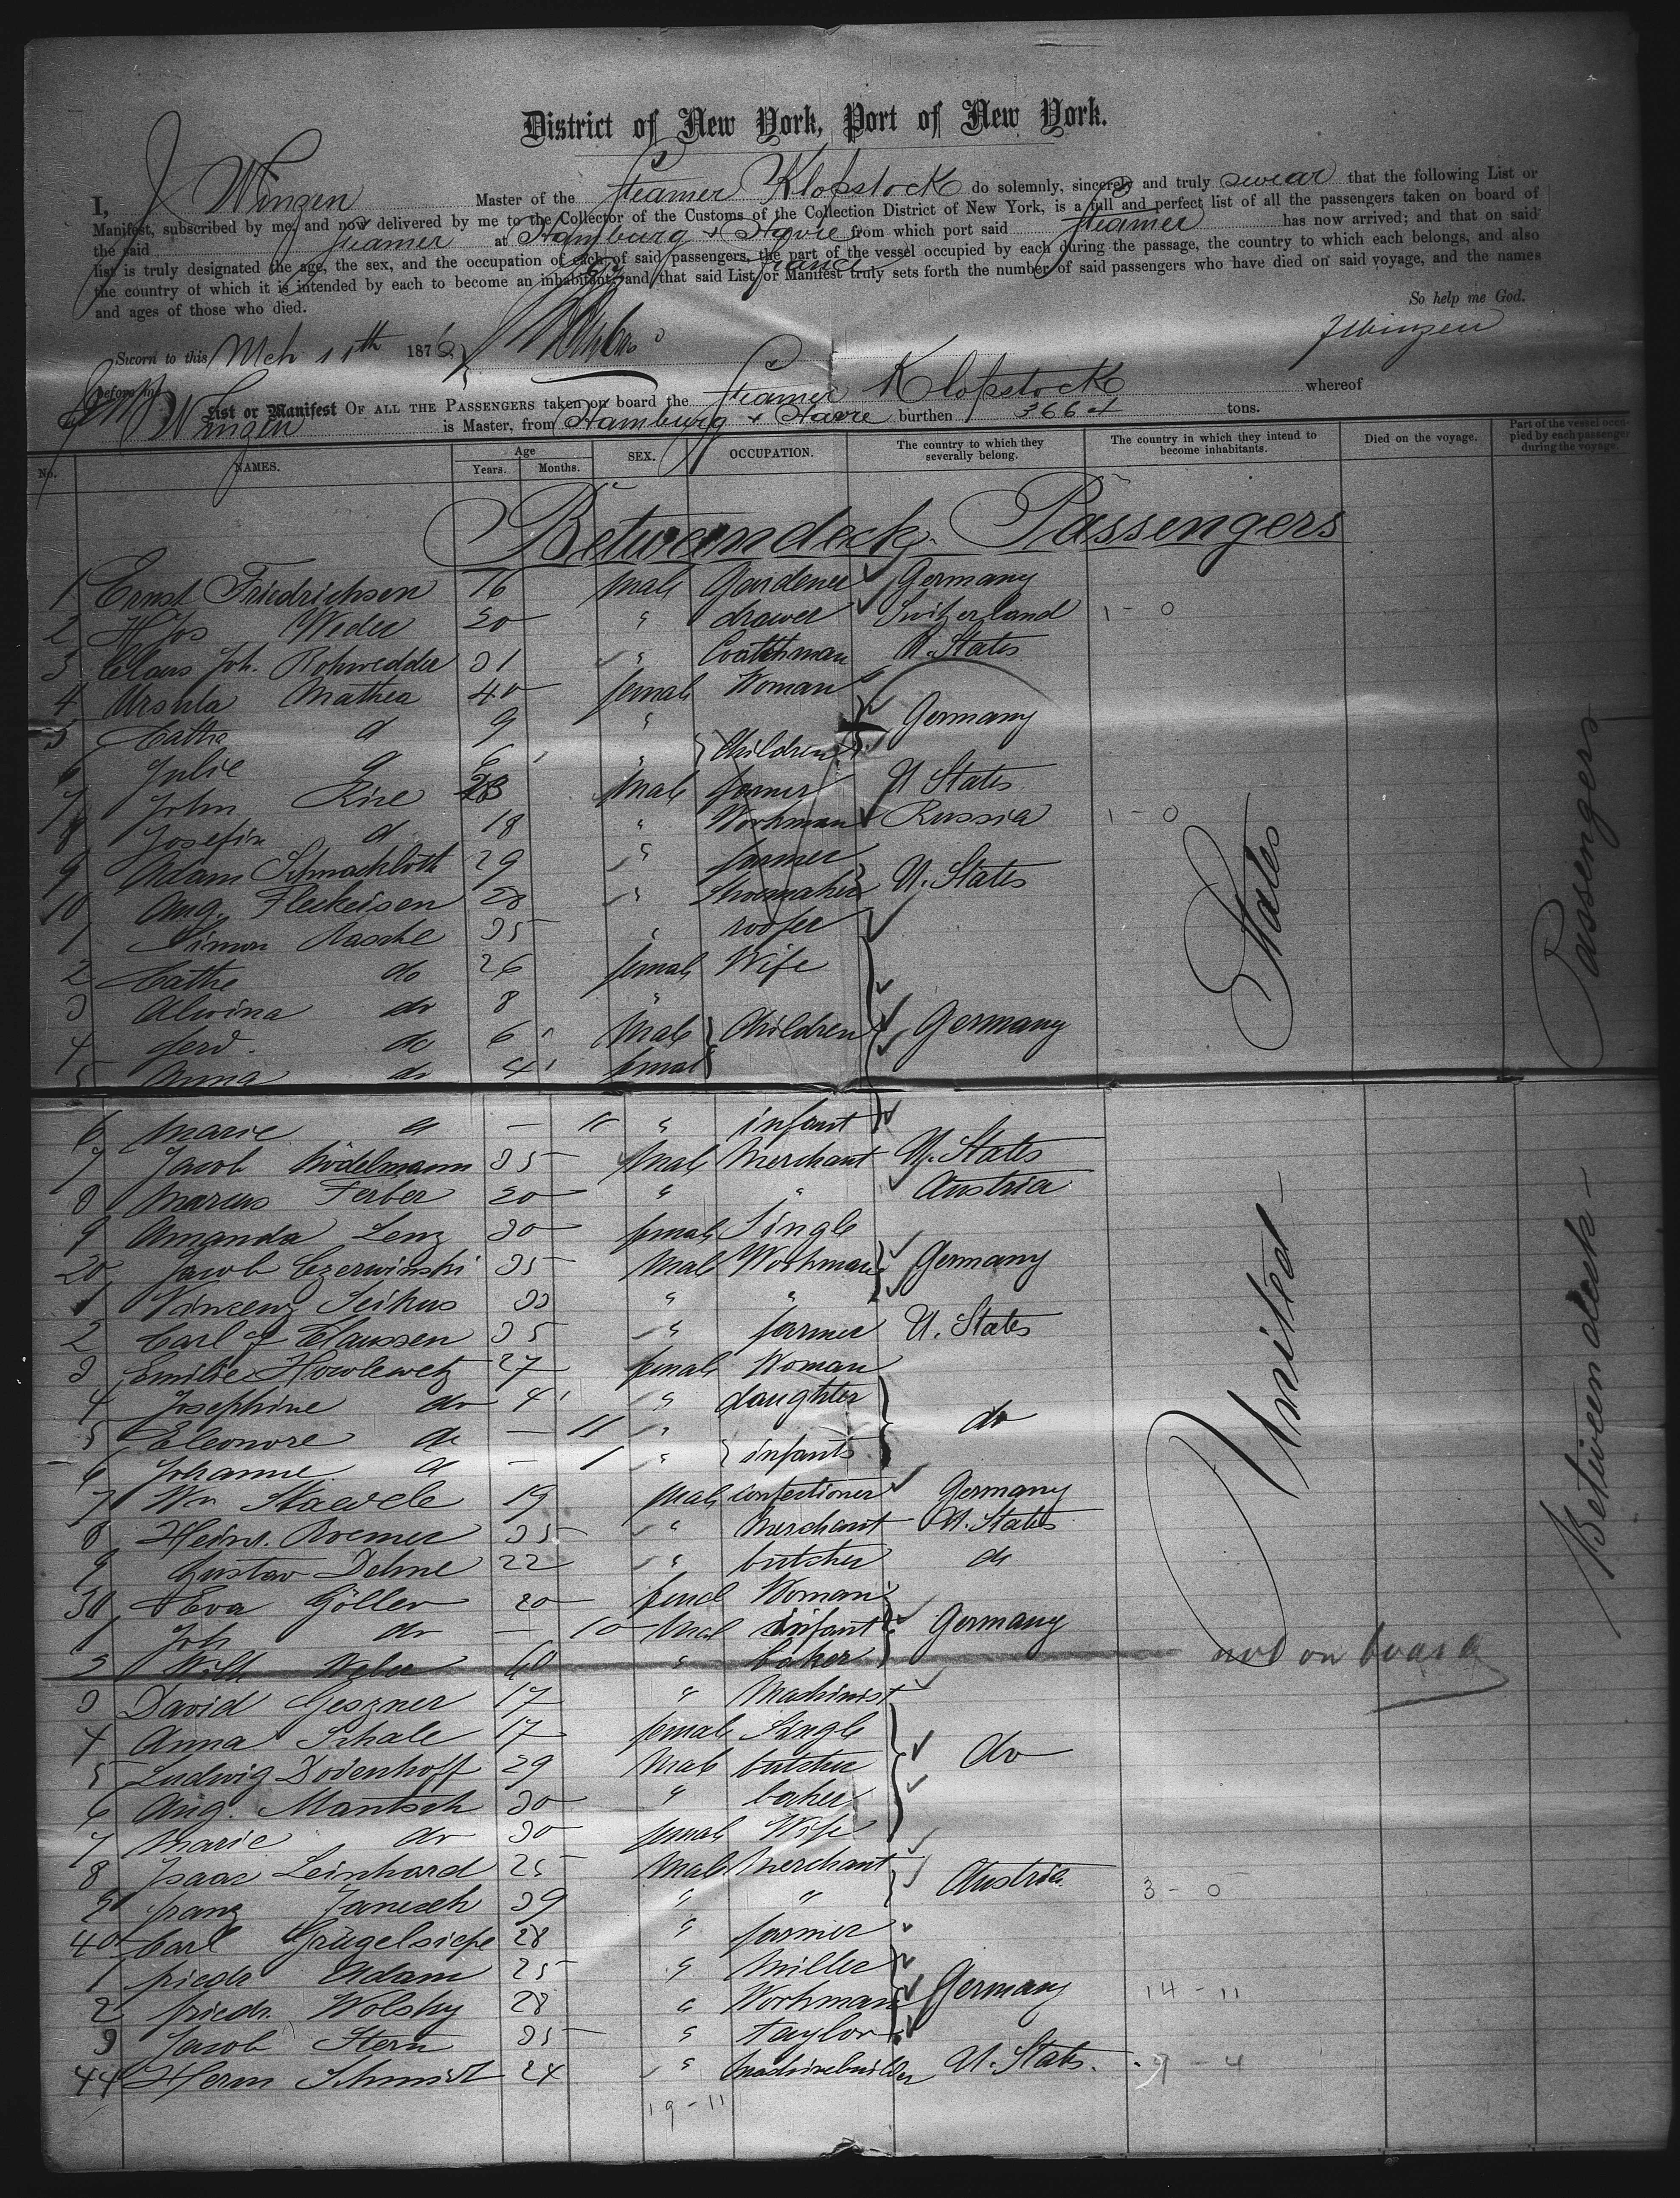 District of New York, Port of New York.
I, J Winzen Master of the Steamer Klopstock do solemnly, sincerely and truly swear that the following List or
Manifest, subscribed by me, and now delivered by me to the Collector of the Customs of the Collection District of New York, is a full and perfect list of all the passengers taken on board of
the said Steamer at Hamburg & Havre from which port said Steamer has now arrived; and that on said
France
list is truly designated the age, the sex, and the occupation of each of said passengers, the part of the vessel occupied by each during the passage, the country to which each belongs, and also
the country of which it is intended by each to become an inhabitant; and that said List or Manifest truly sets forth the number of said passengers who have died on said voyage, and the names
and ages of those who died.
So help me God.
Sworn to this Mch 11th 1876
JWinzen
before me
List or Manifest OF ALL THE PASSENGERS taken on board the Steamer Klopstock whereof
Winzen is Master, from Hamburg & Havre burthen 3664 tons.
No. NAMES. Age Years. Months. SEX. OCCUPATION. The country to which they severally belong. The country in which they intend to become inhabitants. Died on the voyage. Part of the vessel occupied by each passenger during the voyage.
Betweendeck Passengers
1 Ernst Friedrichsen 16 male Gardener Germany
2 Jos Weder 20 " drawer Switzerland 1 - 0
3 Claus Joh. Rohwedder 31 " Coatchman U. States
4 Ursula Mathea 40 female Woman
5 Cathe d 9 " Germany
6 Julie d 6 " Children
7 John 28 Male farmer U States
8 Josefin d 18 " Workman Russia 1 - 0
9 Adam 29 " farmer
10 Aug. Fleckeisen 28 " Shoemaker U. States
1 Simon Rasche 35 " roofer
2 Cathe do 26 female Wife
3 Alwina do 8 "
4 ferd. do 6 Male Children Germany
5 Anna do 4 femal
6 Marie d — 11 " infant
7 Jacob 35 Male Merchant U. States
8 Marcus Ferber 20 " " Austria
9 Amanda Lenz 30 female Single
20 Jacob Czerwinski 35 Male Workman Germany
1 Vinzenz Seikus 33 " "
2 Carl J Claussen 35 " farmer U. States
3 Emilie Howlewetz 27 female Woman
4 Josephine do 4 " daughter do
5 Eleonore do — 11 "
6 Johanne d — 1 " infants
7 Wm 19 male confectioner Germany
8 Heinr. Roemer 35 " Merchant U. States
9 Gustav Dehne 22 " butcher do
30 Eva Göller 20 femal Woman
1 Joh do — 10 Mal infant Germany
2 Wilh Weber 60 " baker not on board
3 David Geszner 17 " Machinist
4 Anna Schale 17 female Single
5 Ludwig Dodenhoff 29 Male butcher do
6 Aug. Mantsch 30 " baker
7 Marie do 30 female Wife
8 Isaac Leinhard 25 Male Merchant
9 franz Janesch 39 " " Austria 3 - 0
40 Carl Grügelsiepe 28 " farmer
1 friedr Adam 25 " Miller
2 friedr. Wolsky 28 " Workman Germany 14 - 11
3 Jacob Stern 35 " Taylor
44 Herm Schmidt 24 " Machinebuilder U. States. 9 - 4
19 - 11
United States
Betweendeck Passengers